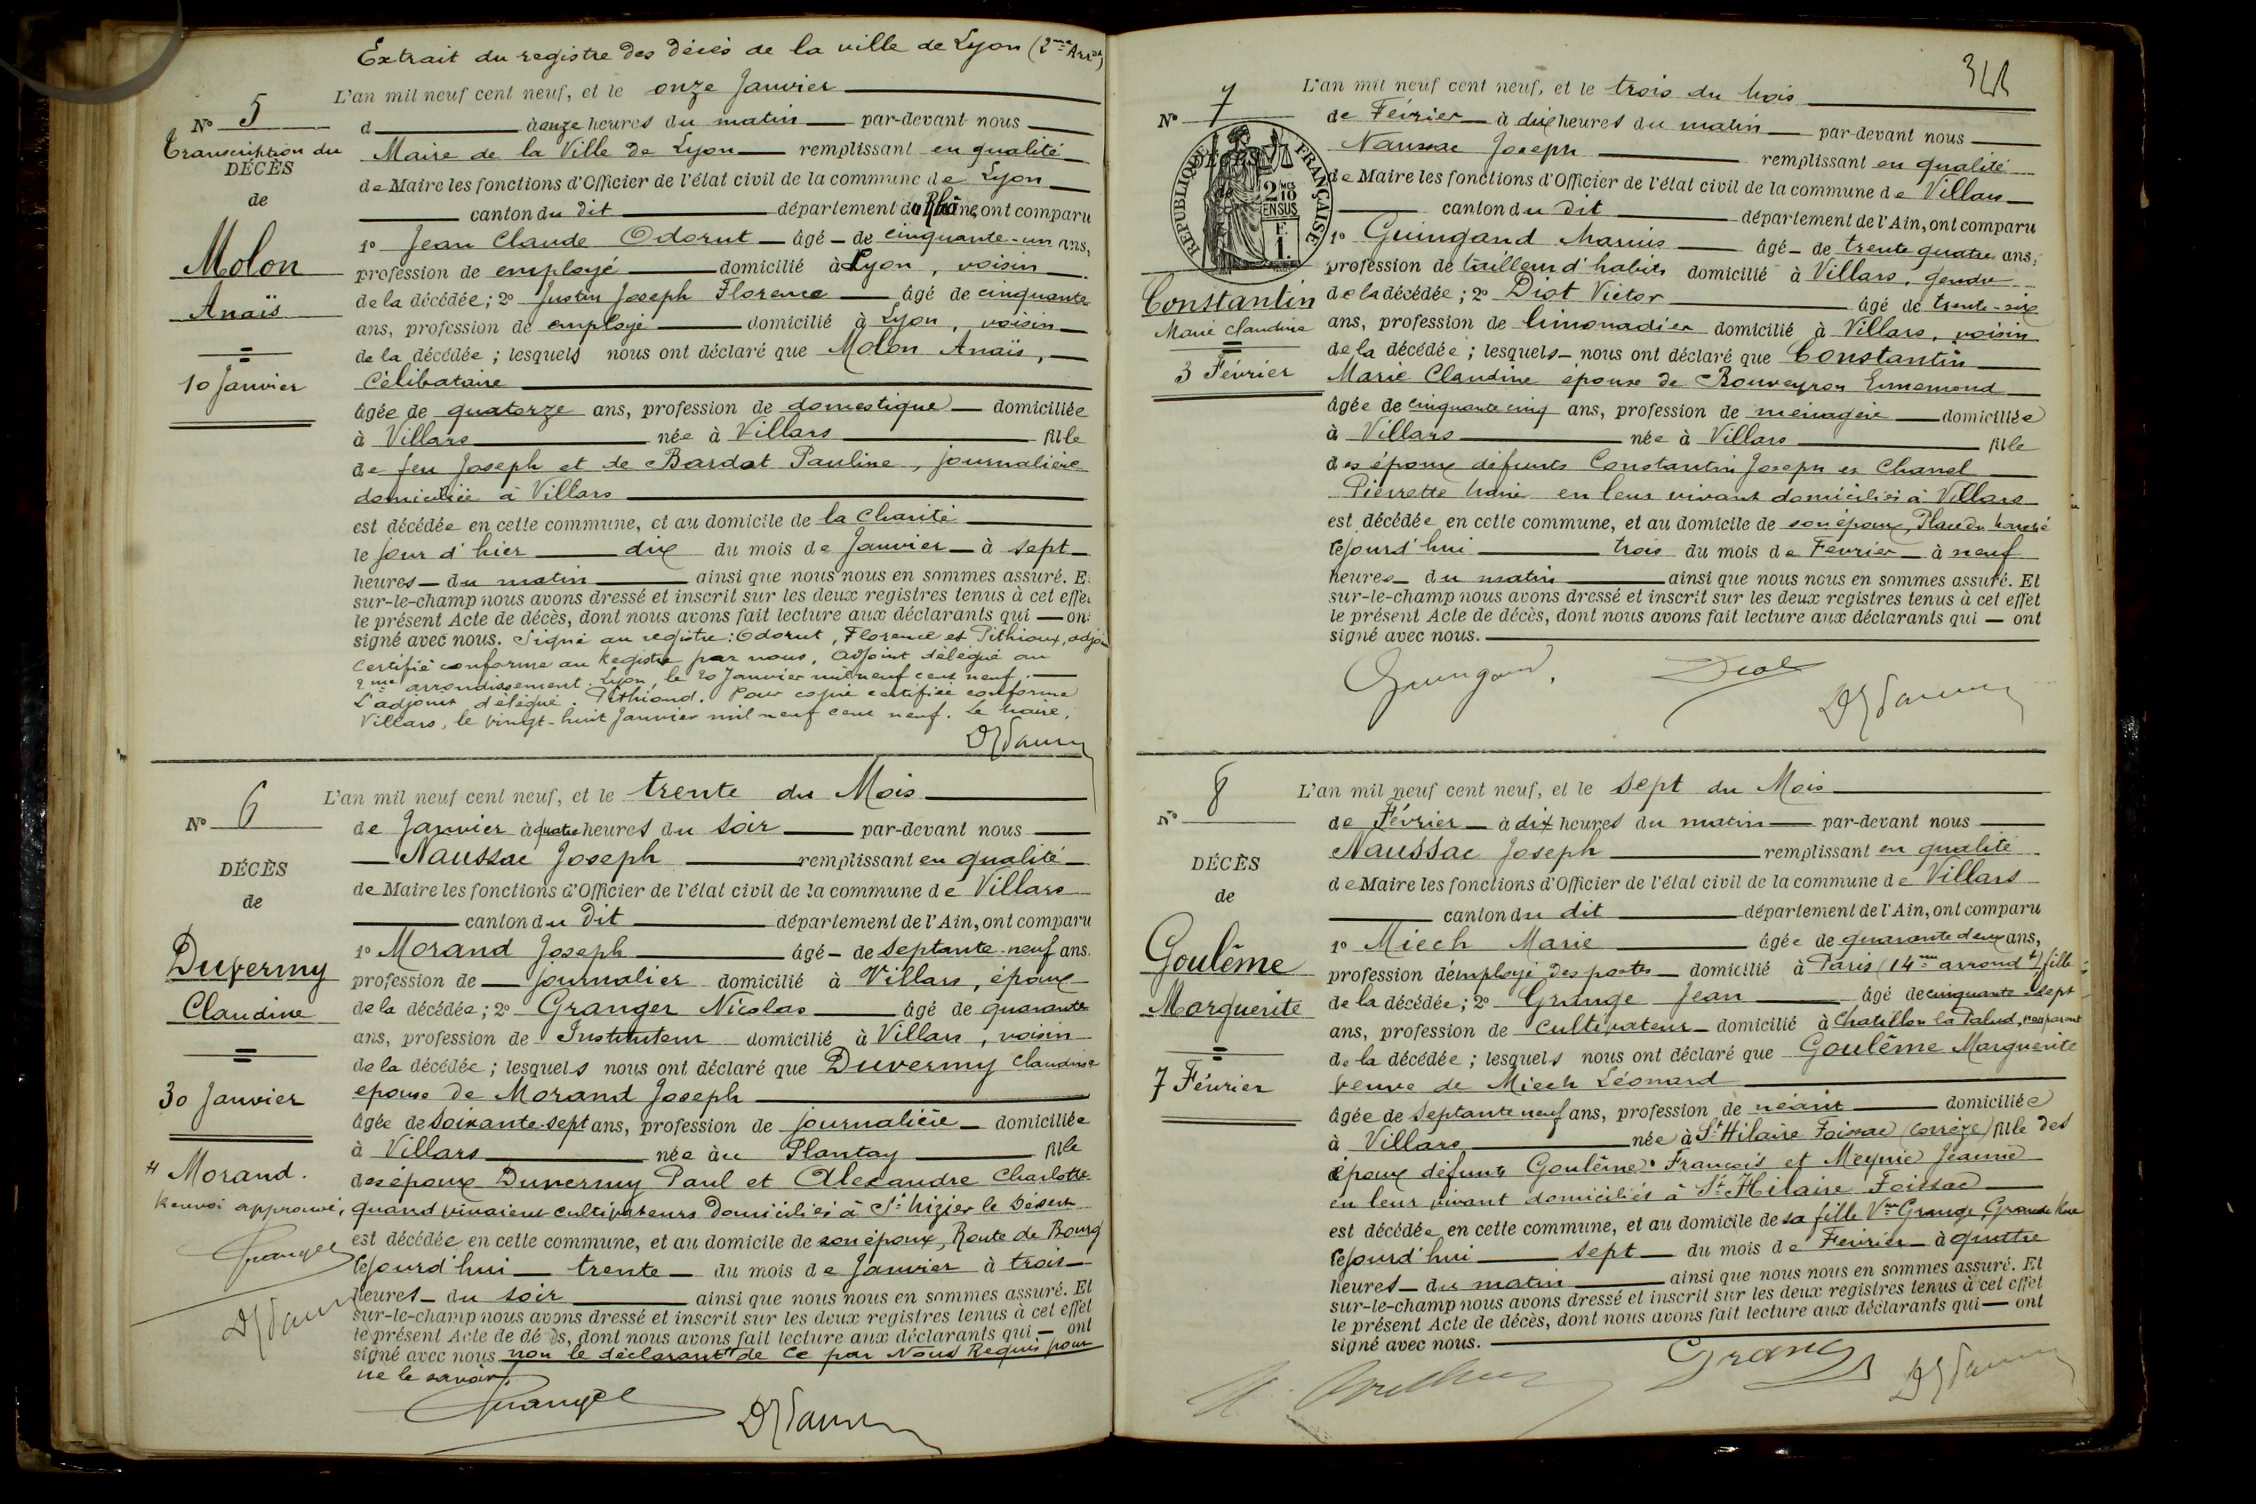 Extrait du registre des décès de la ville de Lyon (2me Arrdt)
L'an mil neuf cent neuf, et le onze Janvier
No 5
d à onze heures du matin par-devant nous
Transcription du
DÉCÈS
de
Molon
Anaïs
10 Janvier
Maire de la Ville de Lyon remplissant en qualité
de Maire les fonctions d'Officier de l'état civil de la commune de Lyon
canton du dit département du Rhône, ont comparu
1o Jean Claude Odorut âgé de cinquante-un ans,
profession de employé domicilié à Lyon, voisin
de la décédée; 2o Justin Joseph Florence âgé de cinquante
ans, profession de employé domicilié à Lyon, voisin
de la décédée; lesquels nous ont déclaré que Molon Anaïs,
Célibataire
âgée de quatorze ans, profession de domestique domiciliée
à Villars née à Villars fille
de feu Joseph et de Bardot Pauline, journalière
domiciliée à Villars
est décédée en cette commune, et au domicile de la Charité
le jour d'hier dix du mois de Janvier à sept
heures du matin ainsi que nous nous en sommes assuré. Et
sur-le-champ nous avons dressé et inscrit sur les deux registres tenus à cet effet
le présent Acte de décès, dont nous avons fait lecture aux déclarants qui ont
signé avec nous. Signé au registre: Odorut, Florence et Pithioux, adjoint
Certifié conforme au Registre par nous, adjoint délégué au
2me arrondissement. Lyon, le 20 Janvier mil neuf cent neuf.
L'adjoint délégué. Pithioud. Pour copie certifiée conforme
Villars, le vingt-huit Janvier mil neuf cent neuf. Le Maire,
No 6
DÉCÈS
de
Duvermy
Claudine
30 Janvier
Morand.
Renvoi approuvé,
L'an mil neuf cent neuf, et le trente du Mois
de Janvier à quatre heures du soir par-devant nous
Naussac Joseph remplissant en qualité
de Maire les fonctions d'Officier de l'état civil de la commune de Villars
canton du dit département de l'Ain, ont comparu
1o Morand Joseph âgé de septante-neuf ans.
profession de journalier domicilié à Villars, époux
de la décédée; 2o Granger Nicolas âgé de quarante
ans, profession de Instituteur domicilié à Villars, voisin
de la décédée; lesquels nous ont déclaré que Duvermy Claudine
épouse de Morand Joseph
âgée de soixante-sept ans, profession de journalière domiciliée
à Villars née au Plantay fille
des époux Duvermy Paul et Alexandre Charlotte
quand vivaient cultivateurs domiciliés à St Nizier le Désert
est décédée en cette commune, et au domicile de son époux, Route de Bourg
cejourd'hui trente du mois de Janvier à trois
heures du soir ainsi que nous nous en sommes assuré. Et
sur-le-champ nous avons dressé et inscrit sur les deux registres tenus à cet effet
le présent Acte de décès, dont nous avons fait lecture aux déclarants qui ont
signé avec nous non le déclarant de ce par Nous Requis pour
ne le savoir.
Granger
344
No 7
RÉPUBLIQUE FRANÇAISE
2/10
EN SUS
Constantin
Marie Claudine
3 Février
L'an mil neuf cent neuf, et le trois du Mois
de Février à dix heures du matin par-devant nous
Naussac Joseph remplissant en qualité
de Maire les fonctions d'Officier de l'état civil de la commune de Villars
canton du dit département de l'Ain, ont comparu
1o Guingand Marius âgé de trente quatre ans,
profession de tailleur d'habits domicilié à Villars, gendre
de la décédée; 2o Diot Victor âgé de trente-six
ans, profession de limonadier domicilié à Villars, voisin
de la décédée; lesquels nous ont déclaré que Constantin
Marie Claudine épouse de Rouveyron Ennemond
âgée de cinquante cinq ans, profession de ménagère domiciliée
à Villars née à Villars fille
des époux défunts Constantin Joseph et Chanel
Pierrette Marie en leur vivant domiciliés à Villars
est décédée en cette commune, et au domicile de son époux, Place du Marché
cejourd'hui trois du mois de Février à neuf
heures du matin ainsi que nous nous en sommes assuré. Et
sur-le-champ nous avons dressé et inscrit sur les deux registres tenus à cet effet
le présent Acte de décès, dont nous avons fait lecture aux déclarants qui ont
signé avec nous.
Guingand, Diot
No 8
DÉCÈS
de
Goulême
Marguerite
7 Février
L'an mil neuf cent neuf, et le sept du Mois
de Février à dix heures du matin par-devant nous
Naussac Joseph remplissant en qualité
de Maire les fonctions d'Officier de l'état civil de la commune de Villars
canton du dit département de l'Ain, ont comparu
1o Miech Marie âgée de quarante deux ans,
profession d'employé des postes domicilié à Paris (14me arrondt), fille
de la décédée; 2o Grange Jean âgé de cinquante-sept
ans, profession de cultivateur domicilié à Chatillon la Palud, non parent
de la décédée; lesquels nous ont déclaré que Goulême Marguerite
veuve de Miech Léonard
âgée de septante neuf ans, profession de néant domiciliée
à Villars née à St Hilaire Foissac (Corrèze) fille des
époux défunts Goulême François et Meynie Jeanne
en leur vivant domiciliés à St Hilaire Foissac
est décédée en cette commune, et au domicile de sa fille Vve Grange, Grande Rue
cejourd'hui sept du mois de Février à quatre
heures du matin ainsi que nous nous en sommes assuré. Et
sur-le-champ nous avons dressé et inscrit sur les deux registres tenus à cet effet
le présent Acte de décès, dont nous avons fait lecture aux déclarants qui ont
signé avec nous.
Grange